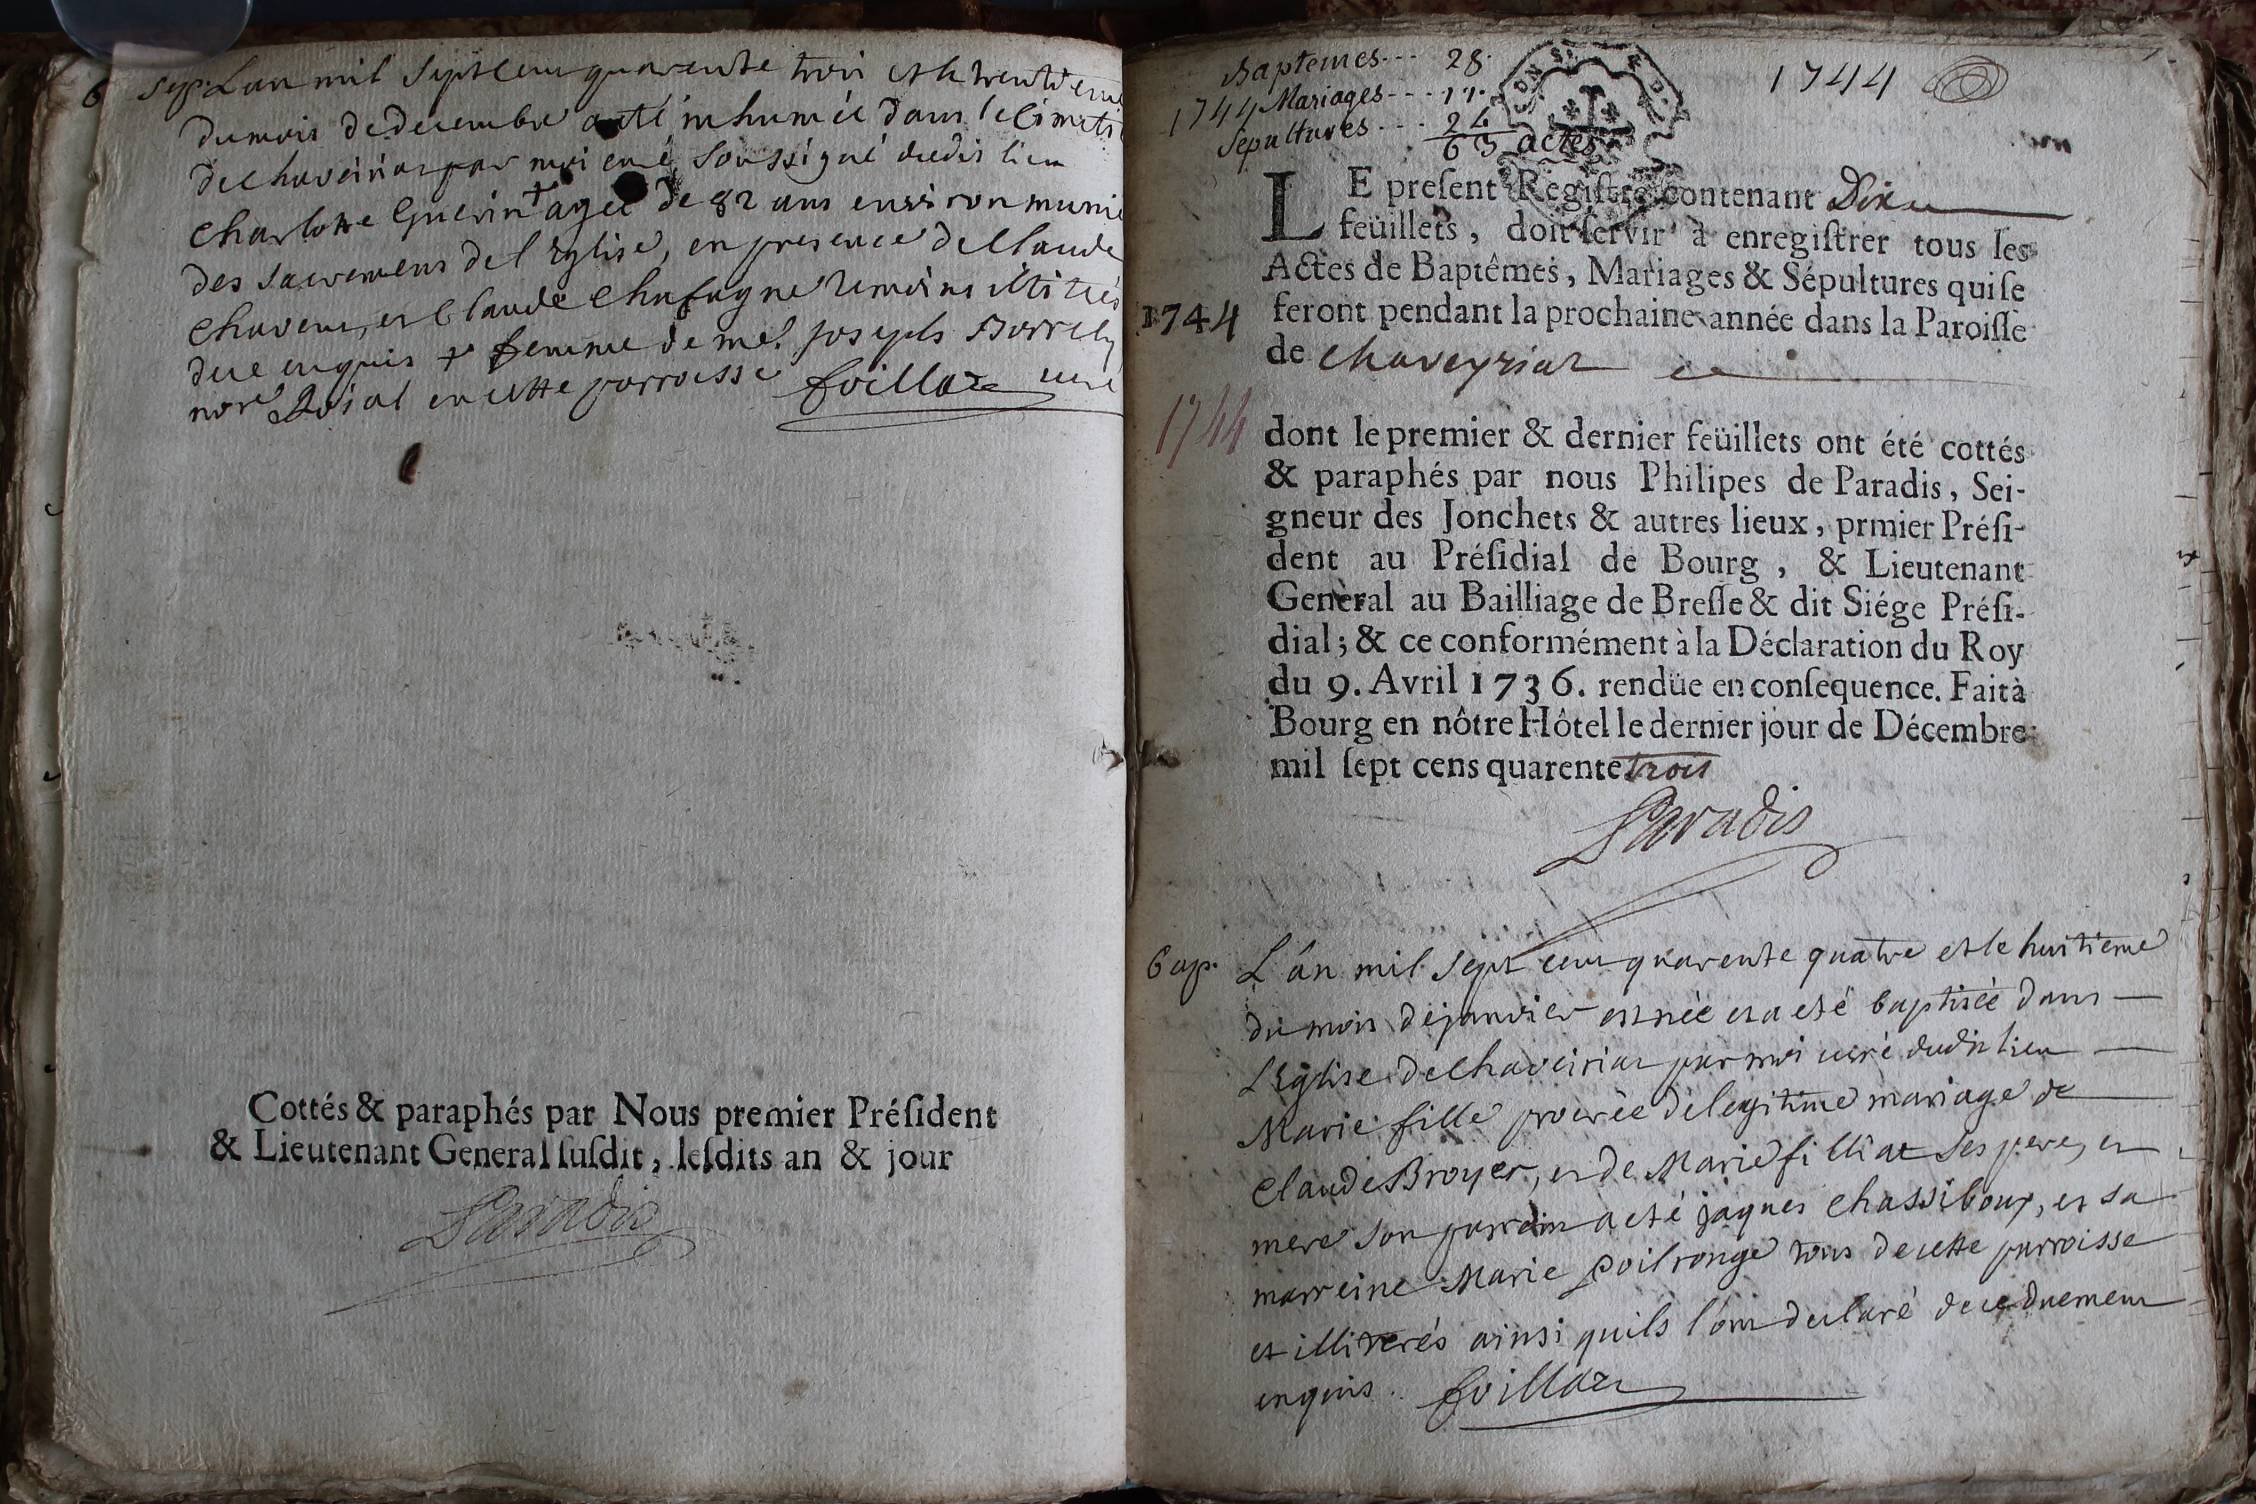 6 sep. L'an mil sept cent quarente trois et le trentieme
du mois de decembre a eté inhumée dans le Cimeti
de chaveiriat par moi curé soussigné dudit lieu
Charlotte Guerin + agée de 82 ans environ munie
des sacremens de l'Eglise, en presence de Claude
Chaveur, et Claude Chafagne temoins illitirés
due enquis + femme de me. joseph Borrely
nore Roial en cette parroisse foillaz curé
Cottés & paraphés par Nous premier Préſident
& Lieutenant General ſuſdit, leſdits an & jour
Paradis
Baptemes--- 28.
1744 Mariages---- 11.
Sépultures--- 24
63 actes
1744
LE preſent Regiſtre contenant Dix
feüillets, doit ſervir à enregiſtrer tous les
Actes de Baptêmes, Mariages & Sépultures qui ſe
1744 feront pendant la prochaine année dans la Paroiſſe
de chaveyriat
1744
dont le premier & dernier feüillets ont été cottés
& paraphés par nous Philipes de Paradis, Sei-
gneur des Jonchets & autres lieux, prmier Préſi-
dent au Préſidial de Bourg, & Lieutenant
Genèral au Bailliage de Breſſe & dit Siége Préſi-
dial; & ce conformément à la Déclaration du Roy
du 9. Avril 1736. rendüe en conſequence. Fait à
Bourg en nôtre Hôtel le dernier jour de Décembre
mil ſept cens quarente trois
Paradis
bap. L'an mil sept cent quarente quatre et le huitieme
du mois de janvier est née et a eté baptisée dans
L'Eglise de Chaveiriat par moi curé dudit lieu
Marie fille procréé de legitime mariage de
Claude Broyer, et de Marie filliat ses pere, et
mere son parrein a eté jaques Chassiboux, et sa
marreine Marie Poilrouge tous de cette parroisse
et illiterés ainsi quils l'ont declaré de ce duement
enquis. foillaz